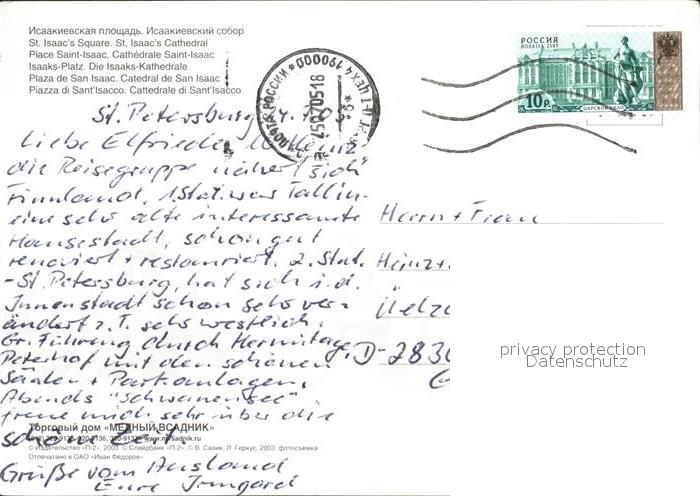 Исаакиевская площадь. Исаакиевский собор
St. Isaac's Square. St. Isaac's Cathedral
Place Saint-Isaac. Cathédrale Saint-Isaac
Isaaks-Platz. Die Isaaks-Kathedrale
Plaza de San Isaac. Catedral de San Isaac
Piazza di Sant'Isacco. Cattedrale di Sant'Isacco
РОССИЯ
ROSSIJA 2003
10р.
ЦАРСКОЕ СЕЛО
ПОЧТА РОССИИ
190000
St. Petersburg
Liebe Elfriede u. Heinz
die Reisegruppe nähert sich
Finnland, 1. Stat. war Tallin.
eine sehr alte interessante
Hansestadt, schon gut
renoviert + restauriert. 2. Stat.
-St. Petersburg, hat sich i. d.
Innenstadt schon sehr ver-
ändert z. T. sehr westlich.
Gr. Führung durch Hermitage,
Peterhof mit den schönen
Säalen + Parkanlagen,
Abends "Schwanensee"
freue mich sehr über die
schöne Zeit.
Grüße vom Ausland
Eure Irmgard
Herrn + Frau
Heinz +
Uelze
D-283
privacy protection
Datenschutz
Торговый дом «МЕДНЫЙ ВСАДНИК»
© Издательство «П-2», 2003. © Слайдбанк «П-2», © В. Савик, Л. Геркус, 2003: фотосъемка
Отпечатано в ОАО «Иван Фёдоров»